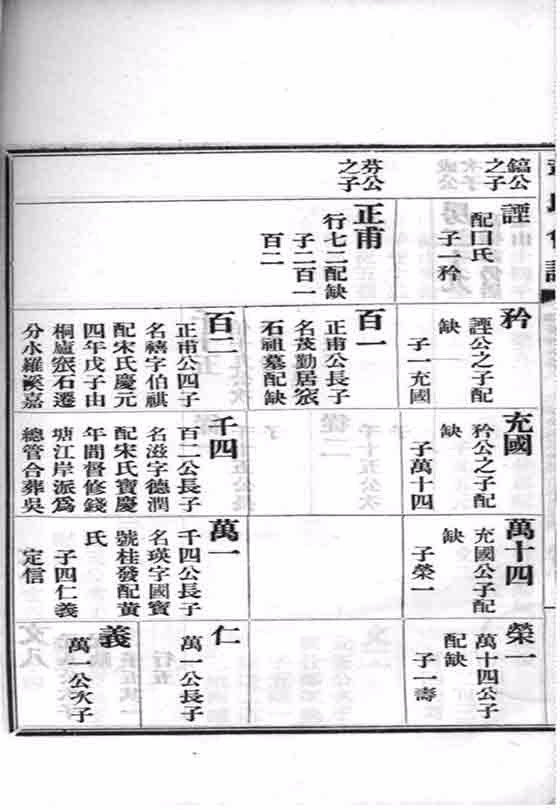 鎬公
之子
諲
配囗氏
子一矜
芬公
之子
正甫
行七二配缺
子二百一
百二
矜
諲公之子配
缺
子一充國
百一
正甫公長子
名茂勤居窾
石祖墓配缺
百二
正甫公四子
名禧字伯祺
配宋氏慶元
四年戊子由
桐廬窾石遷
分水羅溪嘉
充國
矜公之子配
缺
子萬十四
千四
百二公長子
名滋字德潤
配宋氏寶慶
年間督修錢
塘江岸派爲
總管合葬吳
萬十四
充國公子配
缺
子榮一
萬一
千四公長子
名瑛字國寶
號桂發配黃
氏
子四仁義
定信
榮一
萬十四公子
配缺
子一壽
仁
萬一公長子
義
萬一公次子